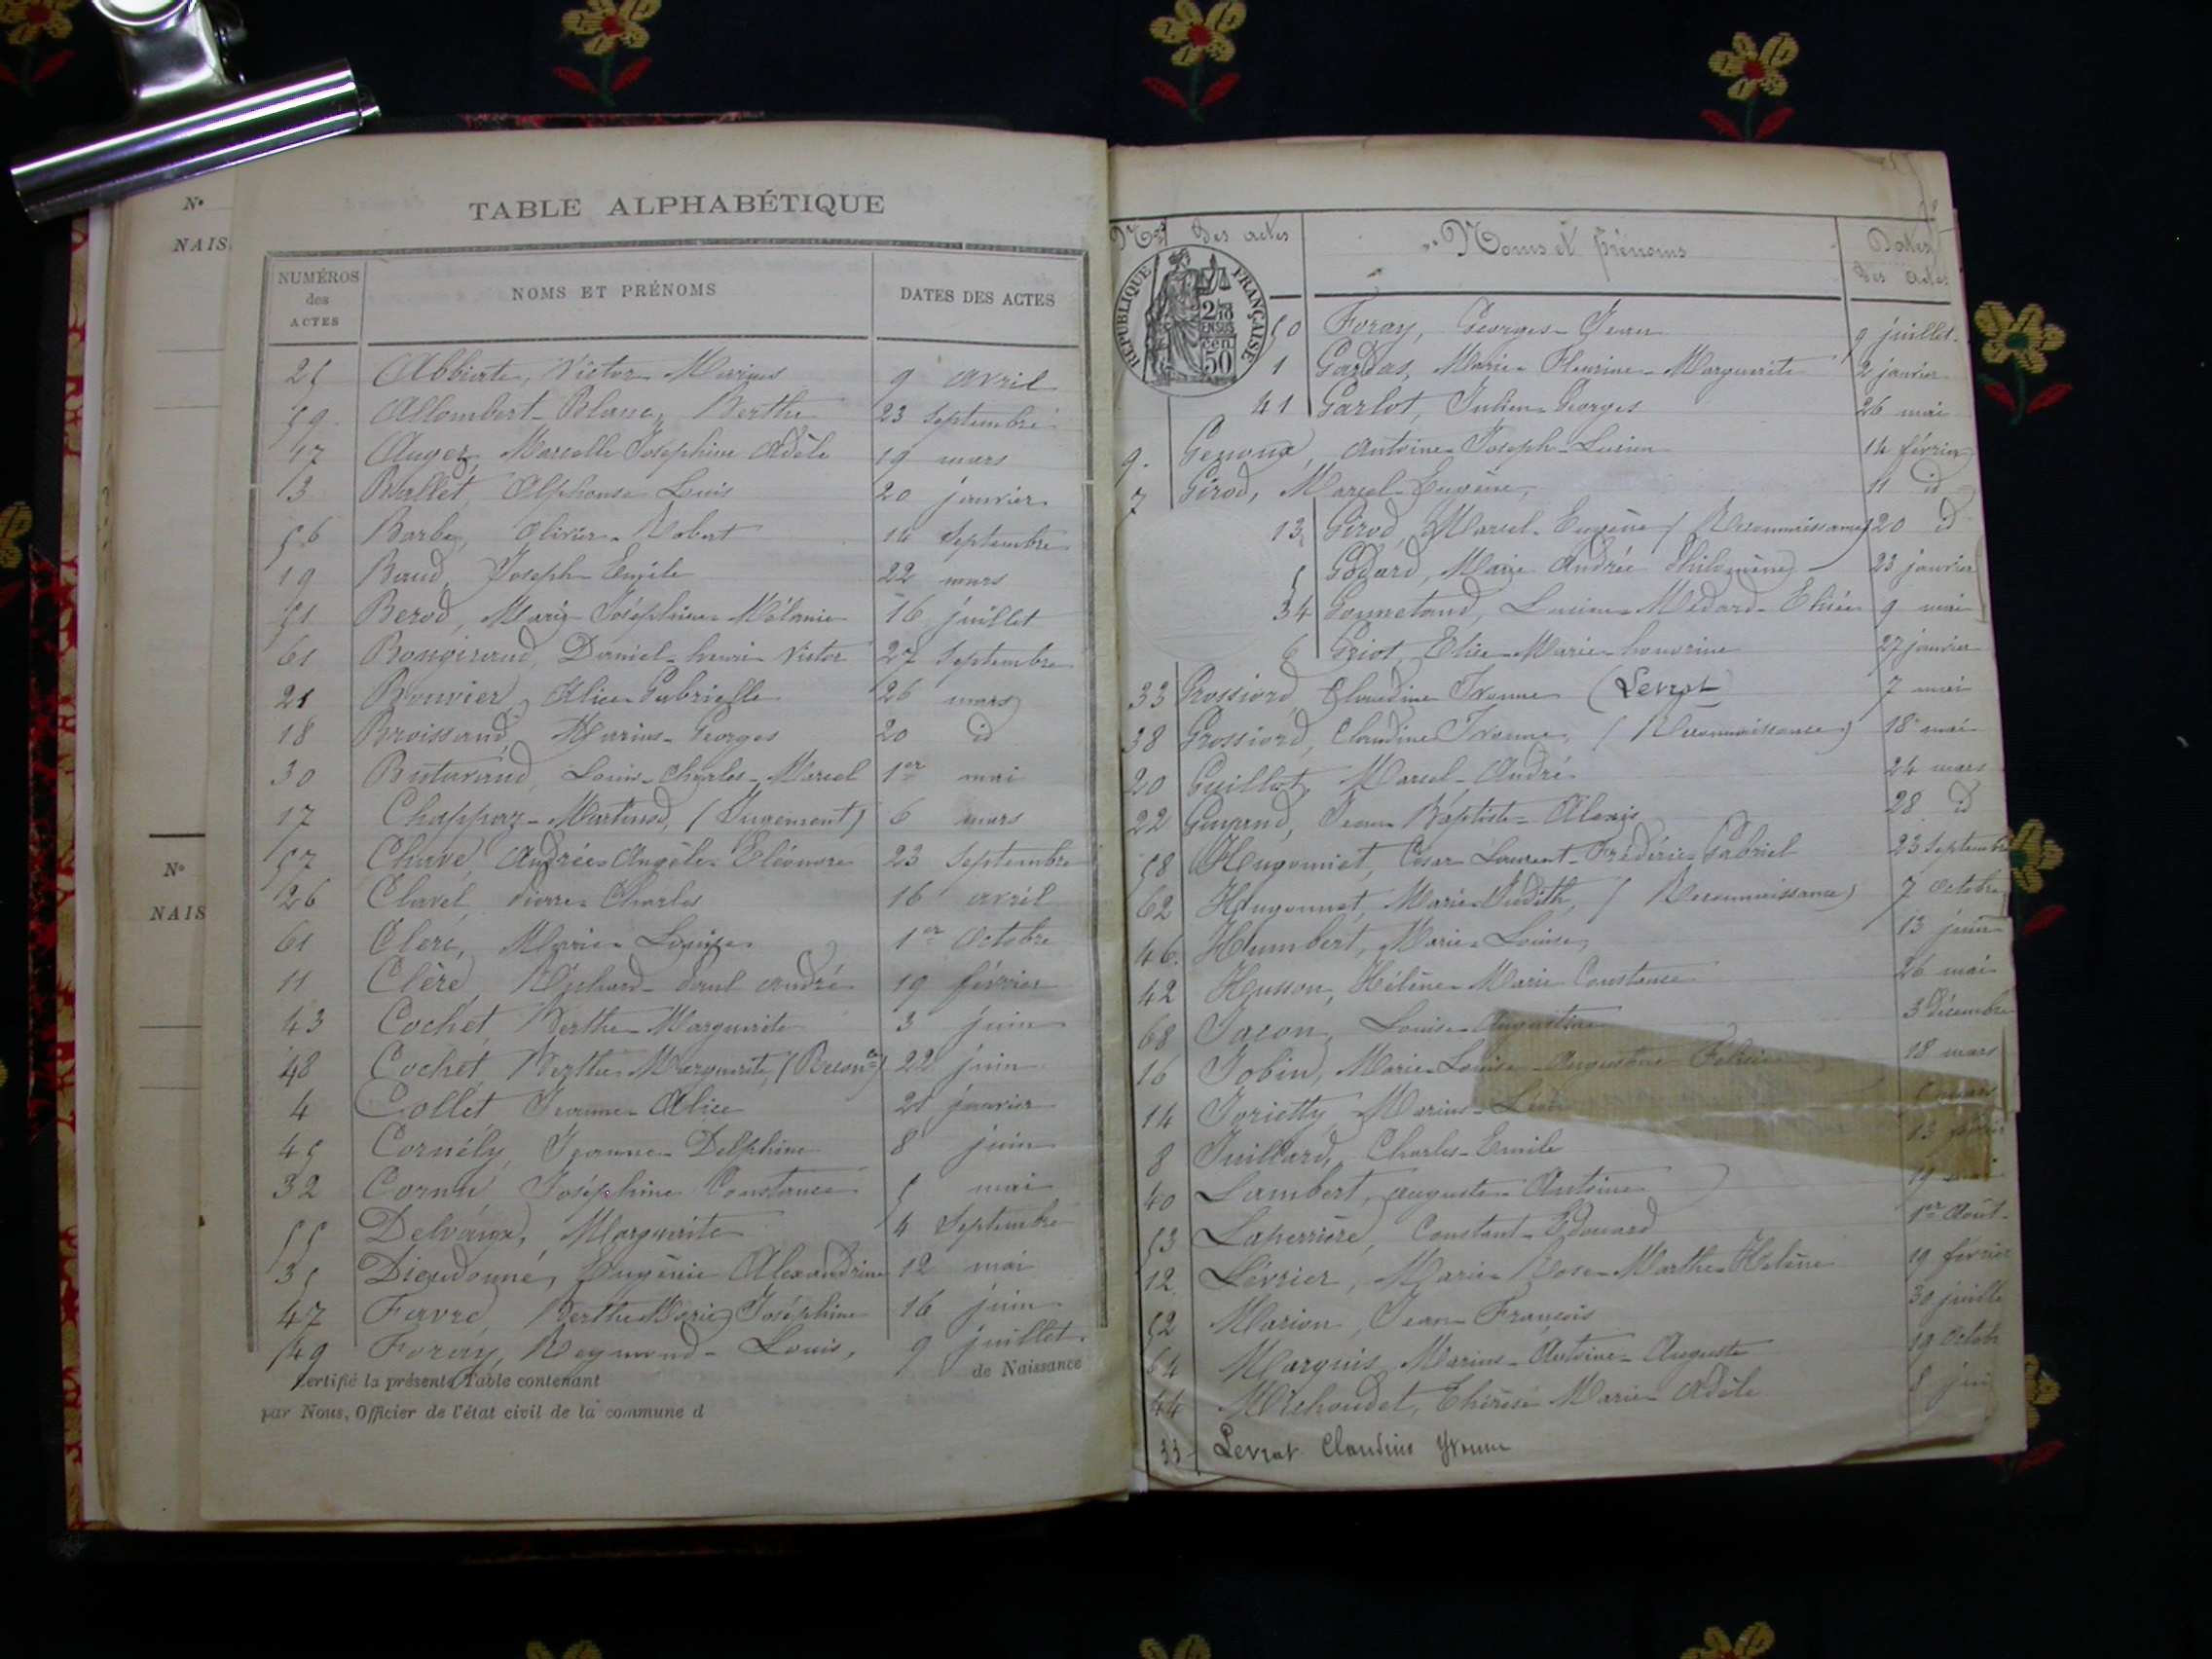 N°
NAIS
N°
NAIS
TABLE ALPHABÉTIQUE
NUMÉROS des ACTES NOMS ET PRÉNOMS DATES DES ACTES
25 Abbiate, Victor Marius 9 avril
59 Allombert-Blanc, Berthe 23 Septembre
17 Auger, Marcelle Joséphine Adèle 19 mars
3 Ballet, Alphonse Louis 20 janvier
56 Barbe, Olivier-Robert 14 Septembre
19 Baud, Joseph-Emile 22 mars
51 Berod, Marie-Joséphine-Mélanie 16 juillet
61 Bongiraud, Daniel-henri-Victor 27 Septembre
21 Bouvier, Alice-Gabrielle 26 mars
18 Broissand, Marius-Georges 20 id
30 Butavand, Louis-Charles-Marcel 1er mai
17 Chappaz-Martinod, (Jugement) 6 mars
57 Chave, Andrée-Angèle-Eléonore 23 Septembre
26 Clavel, Pierre-Charles 16 avril
61 Clerc, Marie-Louise 1er Octobre
11 Clère, Richard-Paul André 19 février
43 Cochet, Berthe-Marguerite 3 juin
48 Cochet, Berthe Marguerite (Reconce) 22 juin
4 Collet Jeanne-Alice 21 janvier
45 Cornély, Jeanne-Delphine 8 juin
32 Cornu Joséphine Constance 5 mai
55 Delvaux, Marguerite 4 Septembre
35 Dieudonné, Eugénie Alexandrine 12 mai
47 Favre, Berthe Marie Joséphine 16 juin
49 Foray, Reymond-Louis, 9 juillet
Certifié la présente Table contenant de Naissance
par Nous, Officier de l'état civil de la commune d
Nos des actes Noms et prénoms Dates des Actes
RÉPUBLIQUE FRANÇAISE
2/10 EN SUS
50 cen
50 Foray, Georges-Jean 9 juillet
1 Gardas, Marie-Fleurine-Marguerite 2 janvier
41 Garlot, Julien-Georges 26 mai
9. Genoux, Antoine-Joseph-Lucien 14 février
7 Girod, Marcel-Eugène, 11 id
13 Girod, Marcel-Eugène (Reconnaissance) 20 id
5 Godard, Marie Andrée Philomène 23 janvier
34 Gonnetand, Lucien-Médard- 9 mai
6 Griot Elise-Marie-honorine 27 janvier
33 Grossiord, Claudine Yvonne (Levrat) 7 mai
38 Grossiord, Claudine Yvonne, (Reconnaissance) 18 mai
20 Guillot, Marcel-André 24 mars
22 Guyand, Jean Baptiste-Alexis 28 id
58 Hugonniet, César Laurent-Frédéric Gabriel 23 Septembre
62 Hugonnet, Marie-Judith, (Reconnaissance) 7 Octobre
46. Humbert, Marie-Louise, 13 juin
42 Husson, Hélène-Marie Constance 26 mai
68 Jacon, Louise-Augustine 3 Décembre
16 Jobin, Marie-Louise-Augustine 18 mars
14 Jorietty Marius- mars
8 Juillard, Charles-Emile 13 février
40 Lambert, Auguste-Antoine 19 mai
53 Laperrière, Constant-Edouard 1er Août
12 Lévrier, Marie-Rose-Marthe-Hélène 19 février
52 Marion, Jean-François 30 juille
64 Marquis Marius-Antoine-Auguste 19 Octob
44 Michoudet, Thérèse Marie-Adèle 8 jui
33 Levrat Claudine Yvonne